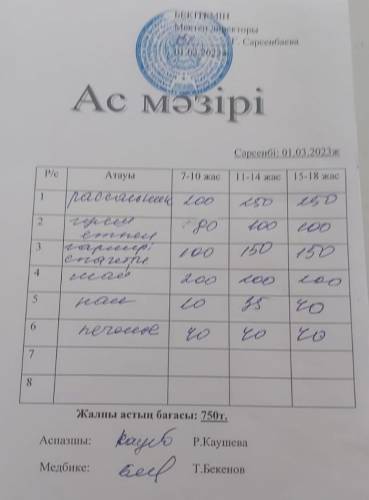 БЕКІТЕМІН
Мектеп директоры
Г. Сарсенбаева
01.03.2023ж
Ас мәзірі
Сәрсенбі: 01.03.2023ж
Р/с Атауы 7-10 жас 11-14 жас 15-18 жас
1 рассольник 200 250 250
2 80 100 100
3 гарнир: спагетти 100 150 150
4 шай 200 200 200
5 нан 20 35 40
6 печенье 40 40 40
7
8
Жалпы астың бағасы: 750т.
Аспазшы: Р.Каушева
Медбике: Т.Бекенов